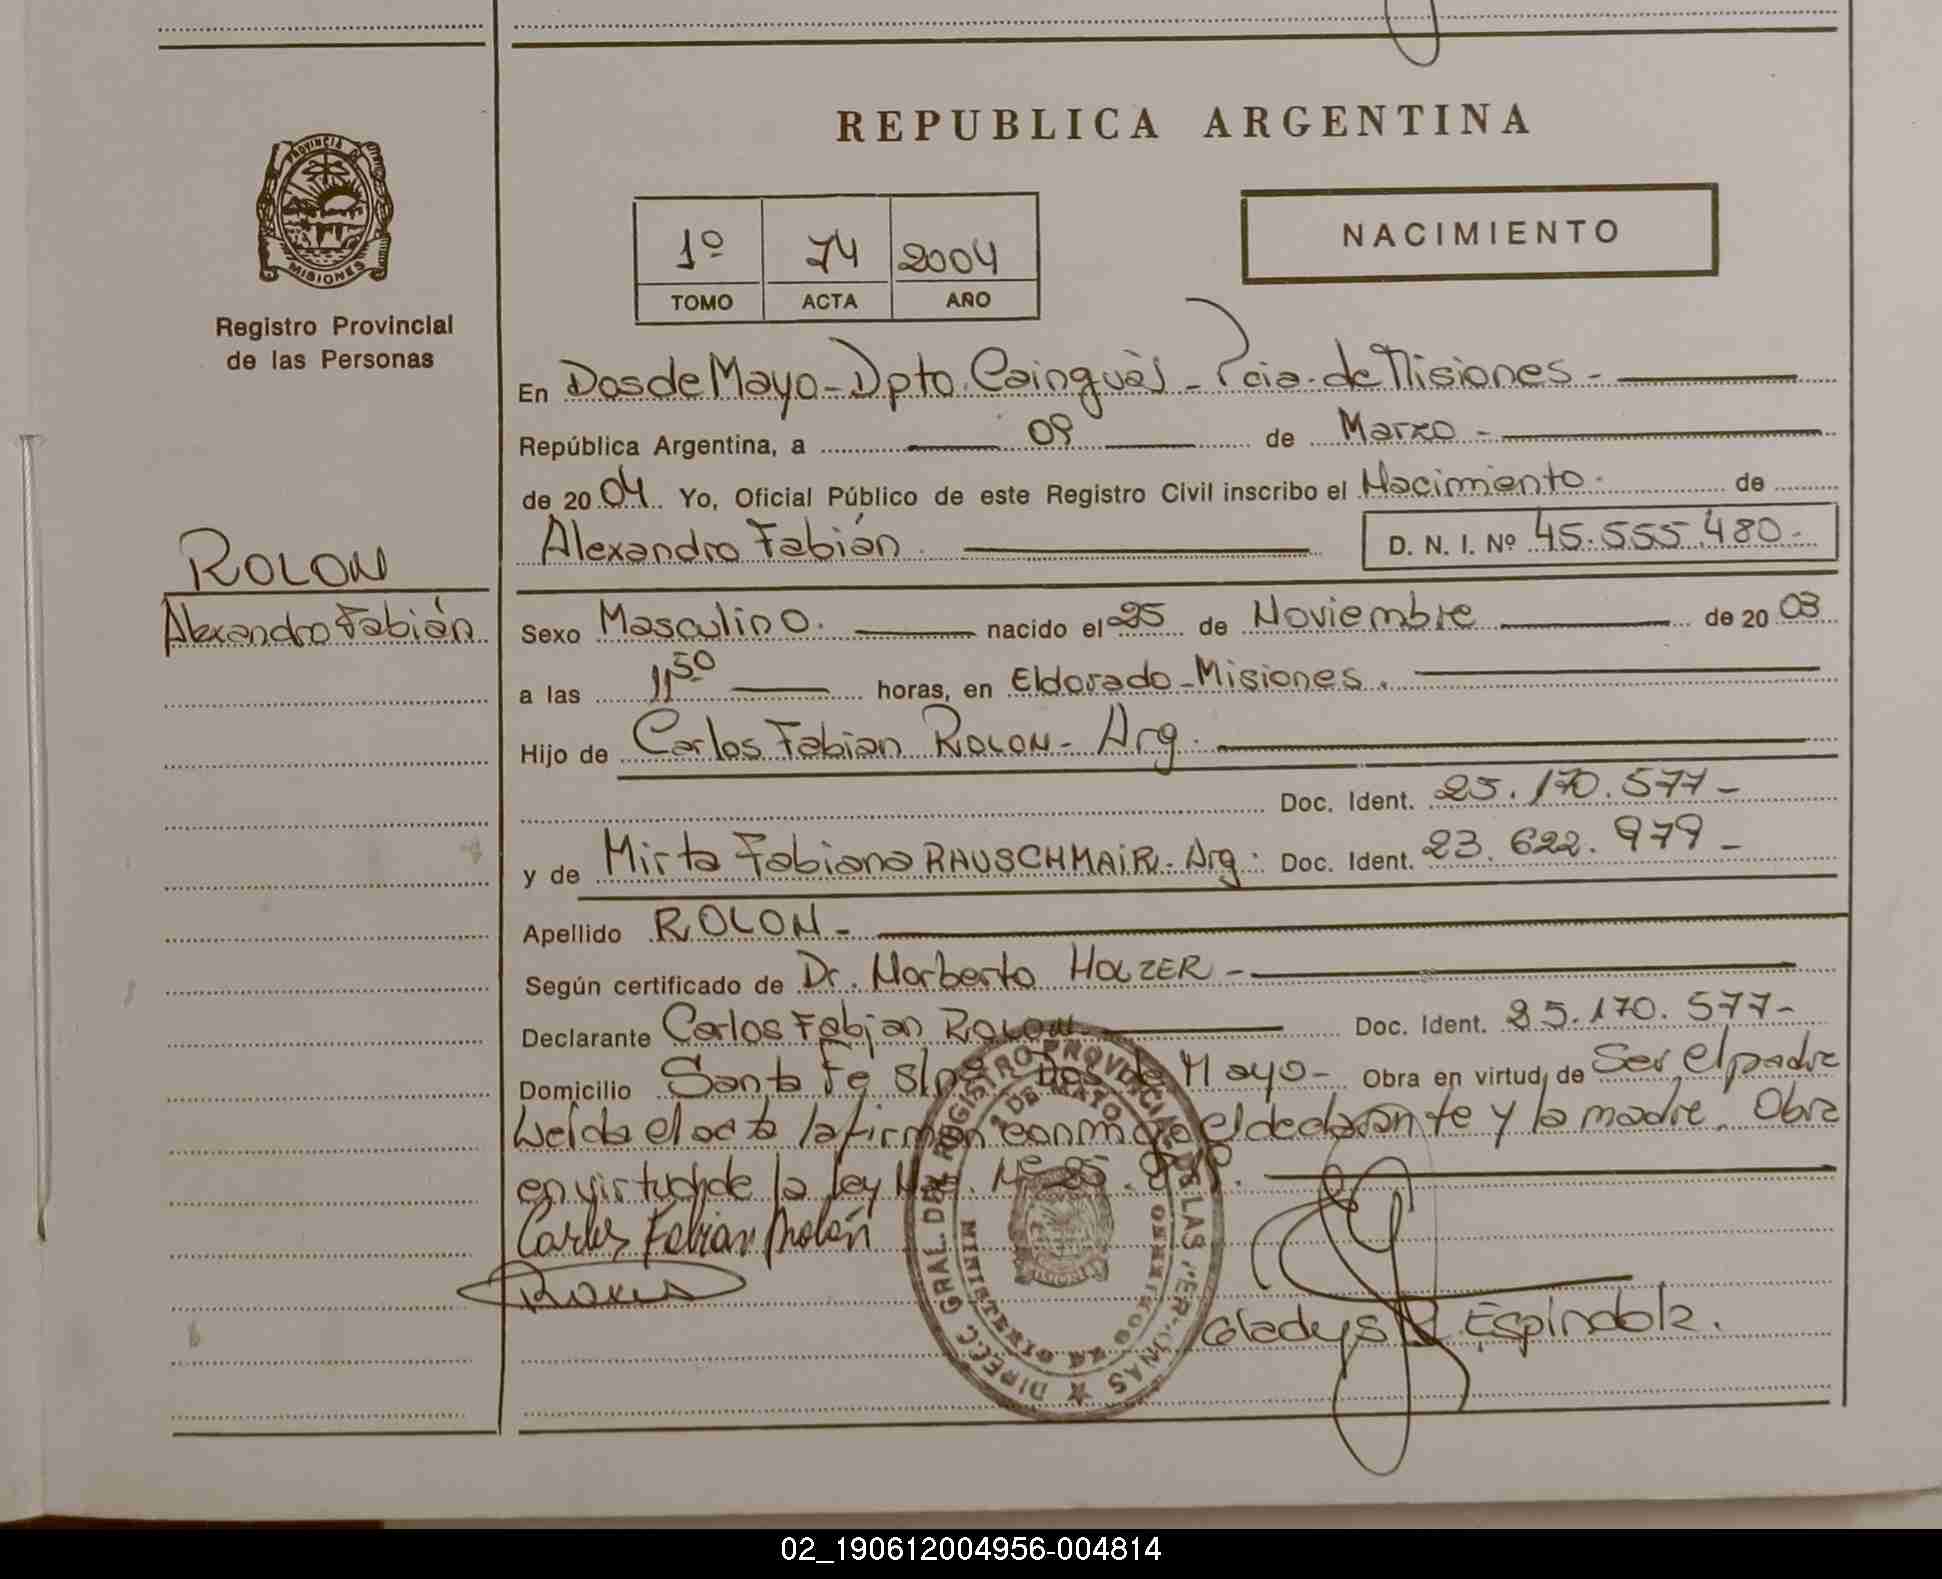 REPUBLICA ARGENTINA
PROVINCIA DE MISIONES
Registro Provincial
de las Personas
1º 74 2004
TOMO ACTA AÑO
NACIMIENTO
En Dos de Mayo - Dpto. Cainguàs - Pcia. de Misiones -
República Argentina, a 09 de Marzo -
de 2004 Yo, Oficial Público de este Registro Civil inscribo el Nacimiento. de
Alexandro Fabián. D. N. I. Nº 45.555.480.-
ROLON
Alexandro Fabián
Sexo Masculino. nacido el 25 de Noviembre de 2003
a las 11 50 horas, en Eldorado - Misiones.
Hijo de Carlos Fabian ROLON - Arg.
Doc. Ident. 25.170.577 -
y de Mirta Fabiana RAUSCHMAIR. Arg: Doc. Ident. 23.622.979 -
Apellido ROLON -
Según certificado de Dr. Norberto HOLZER -
Declarante Carlos Fabian ROLON Doc. Ident. 25.170.577 -
Domicilio Santa Fe s/nº Dos de Mayo - Obra en virtud de Ser el padre
Leida el acta la firman conmigo el declarante y la madre. Obra
en virtud de la ley Nº 25.
Carlos Fabian Rolón
Gladys Espindola.
DIREC. GRAL. DEL REGISTRO PROVINCIAL DE LAS PERSONAS
2 DE MAYO
MINISTERIO DE GOBIERNO
02_190612004956-004814